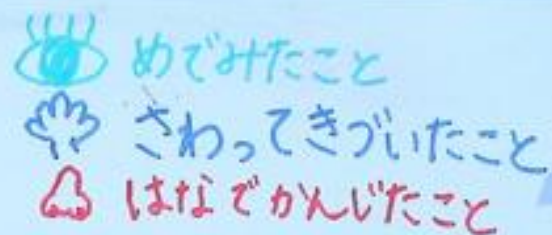 めでみたこと
さわってきづいたこと
はなでかんじたこと